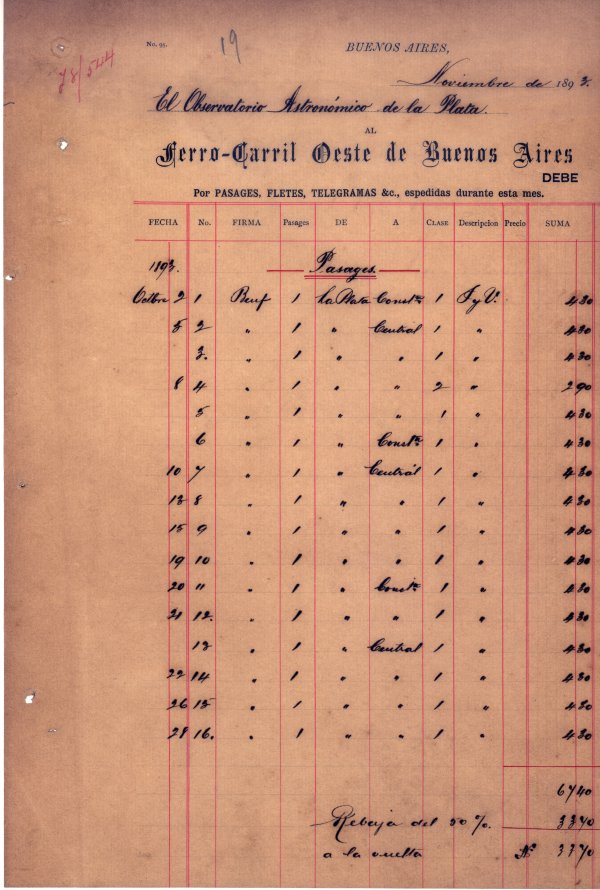 No. 95. 19 BUENOS AIRES,
78/544
Noviembre de 1893.
El Observatorio Astronómico de la Plata.
AL
Ferro-Carril Oeste de Buenos Aires
DEBE
Por PASAGES, FLETES, TELEGRAMAS &c., espedidas durante esta mes.
FECHA No. FIRMA Pasages DE A CLASE Descripcion Precio SUMA
1893. Pasages.
Octbre 2 1 Beuf 1 la Plata Constn 1 I y V. 4 30
5 2 " 1 " Central 1 " 4 30
3. " 1 " " 1 " 4 30
8 4 " 1 " " 2 " 2 90
5 " 1 " " 1 " 4 30
6 " 1 " Constn 1 " 4 30
10 7 " 1 " Central 1 " 4 30
13 8 " 1 " " 1 " 4 30
15 9 " 1 " " 1 " 4 30
19 10 " 1 " " 1 " 4 30
20 11 " 1 " Constn 1 " 4 30
21 12. " 1 " " 1 " 4 30
13 " 1 " Central 1 " 4 30
22 14 " 1 " " 1 " 4 30
26 15 " 1 " " 1 " 4 30
28 16. " 1 " " 1 " 4 30
67 40
Rebaja del 50 %. 33 70
a la vuelta 33 70